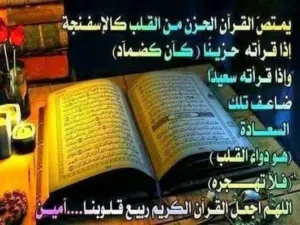 يمتص القرآن الحزن من القلب كالإسفنجة
إذا قرأته حزينا (كان كضماد)
وإذا قرأته سعيدا
ضاعف تلك
السعادة
(هو دواء القلب)
(فلا تهجره)
اللهم اجعل القرآن الكريم ربيع قلوبنا....آمين